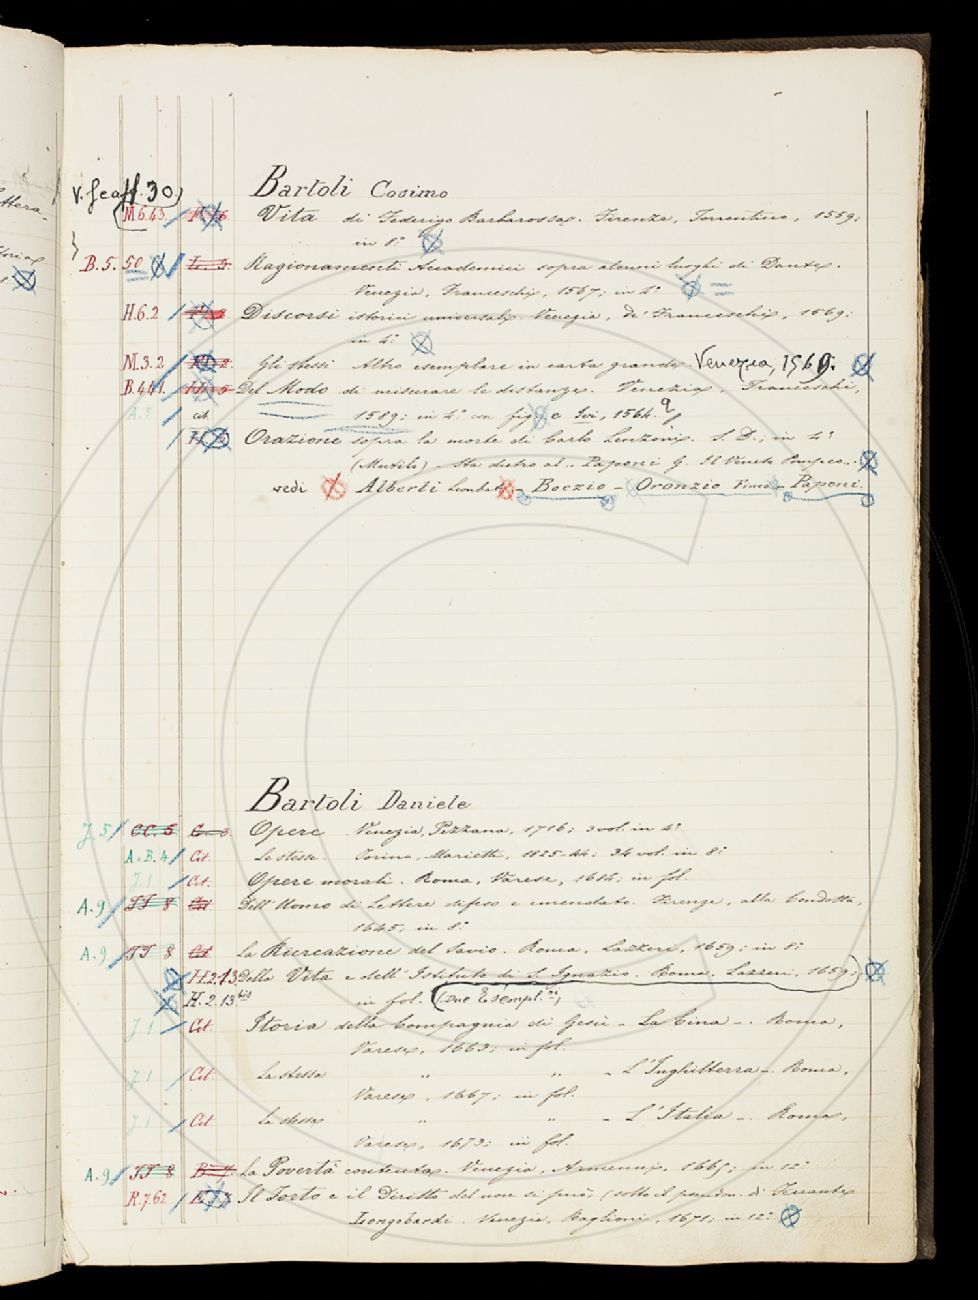 V. Scaff. 30
Bartoli Cosimo
M.6.43. Vita di Federigo Barbarossa. Firenze, Torrentino, 1559;
in 8º
B.5.50 Ragionamenti Accademici sopra alcuni luoghi di Dante.
Venezia, Franceschi, 1567; in 4º
H.6.2 Discorsi istorici universali. Venezia, de' Franceschi, 1569;
in 4º
M.3.2 Gli stessi Altro esemplare in carta grande. Venezia, 1569.
B.4.41. Del Modo di misurare le distanze. Venezia, Franceschi,
A.5 cit. 1589; in 4º con fig. e Ivi, 1564.
Orazione sopra la morte di Carlo Lenzoni. S. D.; in 4º
(Mutilo) - Sta dietro al „Paponi G. Il Veneto Pompeo„.
vedi Alberti Leonbat. - Boezio - Oronzio Fineo - Paponi.
Bartoli Daniele
J.5 CC. 5 Opere Venezia, Pezzana, 1716; 3 vol. in 4º
A.B.4 Cit. Le stesse. Torino, Marietti, 1825-44; 34 vol. in 8º
J 1 Cit. Opere morali. Roma, Varese, 1684; in fol.
A.9 TT 8 Cit Dell'Uomo di Lettere difeso e emendato. Firenze, alla Condotta,
1645, in 8º
A.9 TT 8 Cit La Ricreazione del Savio. Roma, Lazzeri, 1659; in 8º
H.2.13 Della Vita e dell'Istituto di S. Ignazio. Roma, Lazzeri, 1659;
H.2.13 bis in fol. (Due Esempl.ri)
J 1 Cit. Istoria della Compagnia di Gesù - La Cina -. Roma,
Varese, 1663; in fol.
J 1 Cit. La stessa „ „ - L'Inghilterra -. Roma,
Varese, 1667; in fol.
J 1 Cit La stessa „ „ - L'Italia -. Roma,
Varese, 1673; in fol.
A.9 TT 8 La Povertà contenta. Venezia, Armenni, 1665; in 12º
R.7.62 Il Torto e il Diritto del non si può; (sotto il pseudon. di Ferrante
Longobardi. Venezia, Baglioni, 1671; in 12º